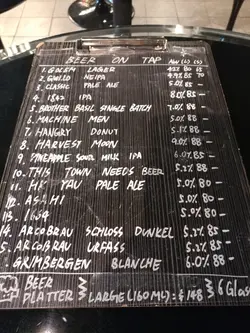 BEER ON TAP ABV (L) (S)
1. GOLEM LAGER 4.5% 80 65
2. GWEILO NEIPA 4.9% 85 70
3. CLASSIC PALE ALE 5.0% 85 -
4. 1842 IPA 8.0% 85 -
5. BROTHER BASIL SINGLE BATCH 7.0% 88 -
6. MACHINE MEN 5.0% 88 -
7. HANGRY DONUT 5.5% 88 -
8. HARVEST MOON 9.0% 88 -
9. PINEAPPLE SOUR MILK IPA 6.0% 85 -
10. THIS TOWN NEEDS BEER 5.2% 88 -
11. HK YAU PALE ALE 5.0% 80 -
12. ASAHI 5.0% 80 -
13. 1664 5.0% 80 -
14. ARCOBRAU SCHLOSS DUNKEL 5.3% 85 -
5. ARCOBRAU URFASS 5.2% 85 -
GRIMBERGEN BLANCHE 6.0% 88 -
BEER
PLATTER LARGE (160ML): $148 6 Glass